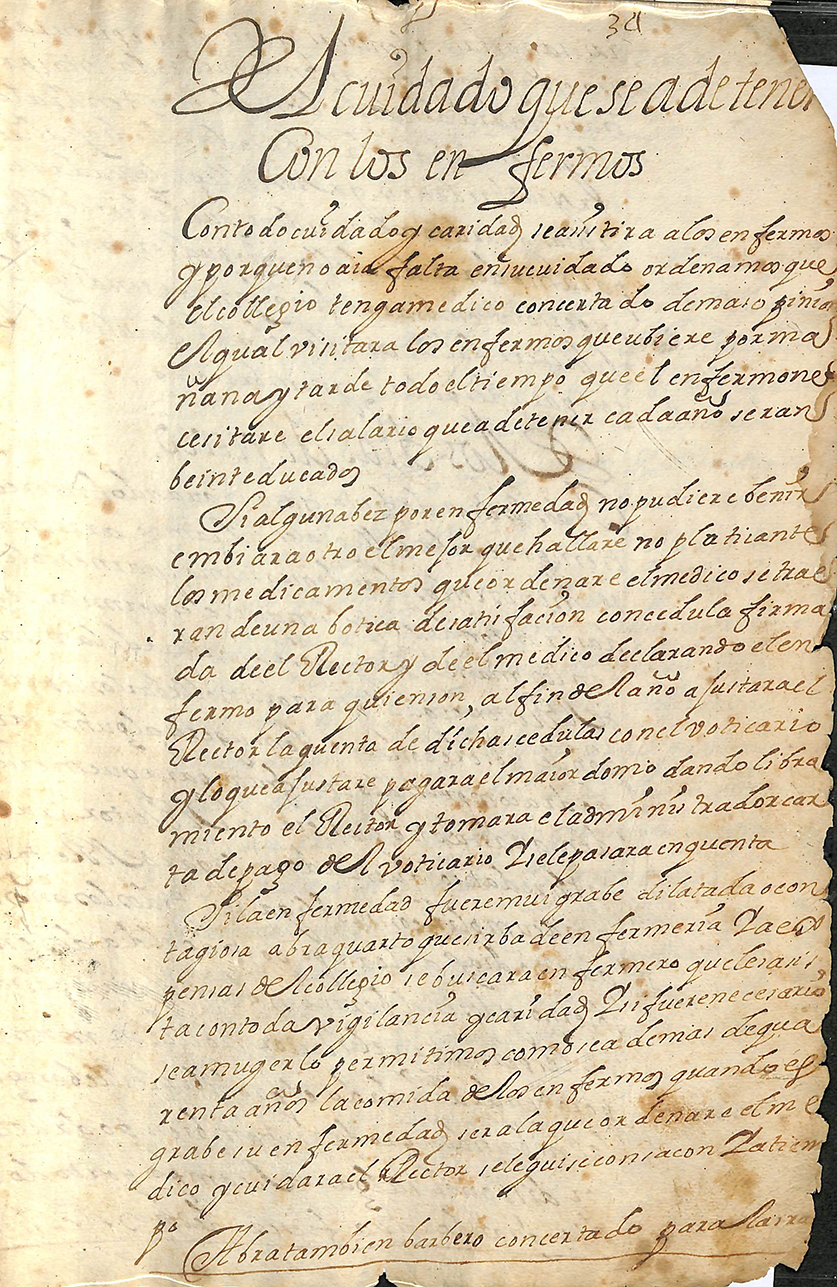 34
Del cuidado que se a de tener
Con los en fermos
Con todo cuidado y caridad se asistira a los enfermos
y porque no aia falta en su cuidado ordenamos que
el collegio tenga medico concertado de mas opinion
el qual visitara los enfermos que ubiere por ma
ñana y tarde todo el tiempo que el enfermo ne
cesitare el salario que a de tener cada año seran
beinte ducados
Si alguna bez por enfermedad no pudiere benir
embiara otro el mejor que hallare no platicante
los medicamentos que ordenare el medico se trae
ran de una botica de satisfacion con cedula firma
da de el Rector y de el medico declarando el en
fermo para quien son, al fin del año ajustara el
Rector la quenta de dichas cedulas con el voticario
y lo que ajustare pagara el maiordomo dando libra
miento el Rector y tomara el administrador car
ta de pago del voticario y se le pasara en quenta
Si la enfermedad fuere mui grabe dilatada o con
tagiosa abra quarto que sirba de enfermeria y a es
pensas del collegio se buscara enfermero que les asis
ta con toda vigilancia y caridad y si fuere necesario
sea muger lo permitimos como sea de mas de qua
renta años la comida de los enfermos quando es
grabe su enfermedad sera la que ordenare el me
dico y cuidara el Rector se le guise con sacon y a tiem
po
Abra tambien barbero concertado para